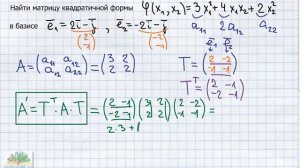 Найти матрицу квадратичной формы φ(x₁,x₂)=3x₁²+4x₁x₂+2x₂²
в базисе e̅₁=2i̅-j̅, e̅₂=-2i̅-j̅
(2 -1) (-2 -1) a₁₁ 2a₁₂ a₂₂
A=(a₁₁ a₁₂; a₁₂ a₂₂)=(3 2; 2 2)
e̅₁ e̅₂
T=(2 -2; -1 -1)
Tᵀ=(2 -1; -2 -1)
A'=Tᵀ·A·T=(2 -1; -2 -1)(3 2; 2 2)(2 -2; -1 -1)=
2·3+(